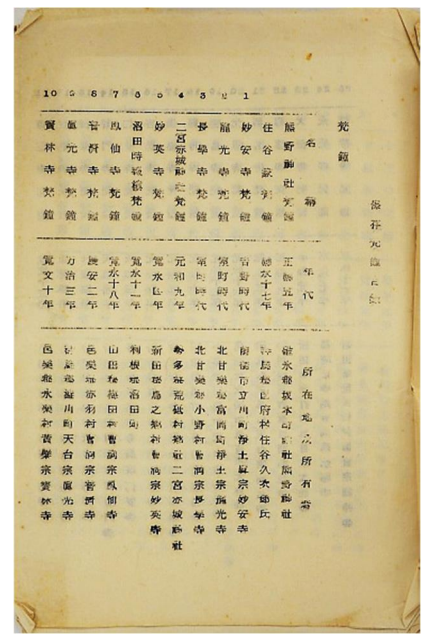 梵鐘
名稱 年代 所在地及所有者
熊野神社梵鐘 正應五年 碓氷郡坂本町 熊野神社
住谷 梵鐘 應永十七年 群馬郡国府村住谷久次郎氏
1 妙安寺梵鐘 吉野時代 前橋市立川町淨土眞宗妙安寺
2 龍光寺梵鐘 室町時代 北甘樂郡富岡町淨土宗龍光寺
3 長學寺梵鐘 室町時代 北甘樂郡小野村曹洞宗長學寺
4 二宮赤城神社梵鐘 元和九年 勢多郡荒砥村郷社二宮赤城神社
5 妙英寺梵鐘 寛永四年 新田郡鳥之郷村曹洞宗妙英寺
6 沼田時鐘樓梵鐘 寛永十一年 利根郡沼田町
7 鳳仙寺梵鐘 寛永十八年 山田郡梅田村曹洞宗鳳仙寺
8 普濟寺梵鐘 慶安二年 邑樂郡赤羽村曹洞宗普濟寺
9 眞光寺梵鐘 万治三年 群馬郡澁川町天台宗眞光寺
10 寶林寺梵鐘 寛文十年 邑樂郡永樂村黃檗宗寶林寺